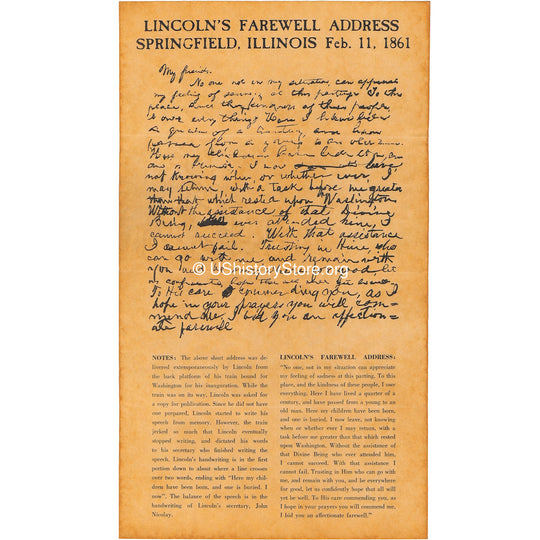 LINCOLN'S FAREWELL ADDRESS
SPRINGFIELD, ILLINOIS Feb. 11, 1861
My friends.
No one not in my situation, can appreciate
my feeling of sadness at this parting. To this
place, and the kindness of these people,
I owe every thing. Here I have lived
a quarter of a century, and have
passed from a young to an old man.
Here my children have been born, and
one is buried. I now leave,
not knowing when, or whether ever, I
may return, with a task before me greater
than that which rested upon Washington
Without the assistance of that Divine
Being, who ever attended him, I
cannot succeed. With that assistance
I cannot fail. Trusting in Him, who
can go with me, and remain with
you and
good, let
us confidently hope that all will yet be well
To His care commending you, as I
hope in your prayers you will com-
mend me, I bid you an affection-
ate farewell
© UShistoryStore.org
NOTES: The above short address was de-
livered extemporaneously by Lincoln from
the back platform of his train bound for
Washington for his inauguration. While the
train was on its way, Lincoln was asked for
a copy for publication. Since he did not have
one prepared, Lincoln started to write his
speech from memory. However, the train
jerked so much that Lincoln eventually
stopped writing, and dictated his words
to his secretary who finished writing the
speech. Lincoln's handwriting is in the first
portion down to about where a line crosses
over two words, ending with "Here my chil-
dren have been born, and one is buried. I
now". The balance of the speech is in the
handwriting of Lincoln's secretary, John
Nicolay.
LINCOLN'S FAREWELL ADDRESS:
"No one, not in my situation can appreciate
my feeling of sadness at this parting. To this
place, and the kindness of these people, I owe
everything. Here I have lived a quarter of a
century, and have passed from a young to an
old man. Here my children have been born,
and one is buried. I now leave, not knowing
when or whether ever I may return, with a
task before me greater than that which rested
upon Washington. Without the assistance of
that Divine Being who ever attended him,
I cannot succeed. With that assistance I
cannot fail. Trusting in Him who can go with
me, and remain with you, and be everywhere
for good, let us confidently hope that all will
yet be well. To His care commending you, as
I hope in your prayers you will commend me.
I bid you an affectionate farewell."